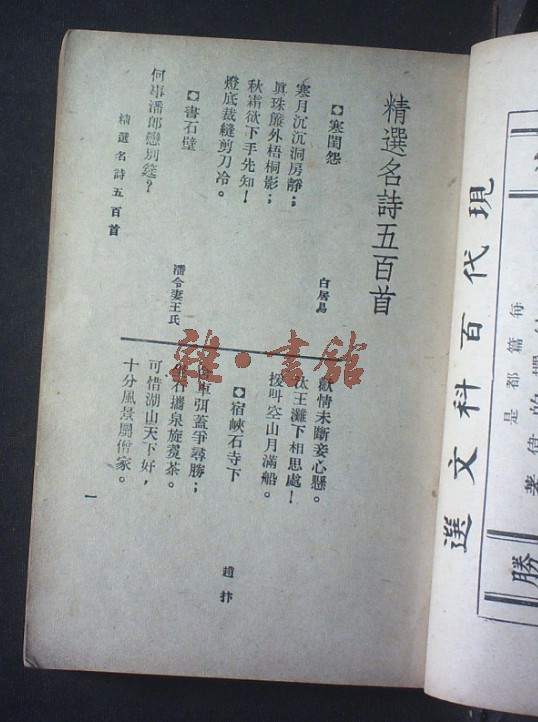 精選名詩五百首
【】寒閨怨
白居易
寒月沉沉洞房靜；
眞珠簾外梧桐影；
秋霜欲下手先知！
燈底裁縫剪刀冷。
【】書石壁
潘令妻王氏
何事潘郎戀別筵？
歡情未斷妾心懸。
汰王灘下相思處！
猨叫空山月滿船。
【】宿峽石寺下
趙抃
車弭蓋爭尋勝；
石攜泉旋煑茶。
可惜湖山天下好，
十分風景屬僧家。
精選名詩五百首
一
雜·書館
現代百科文選
每篇都是
偉著
勝